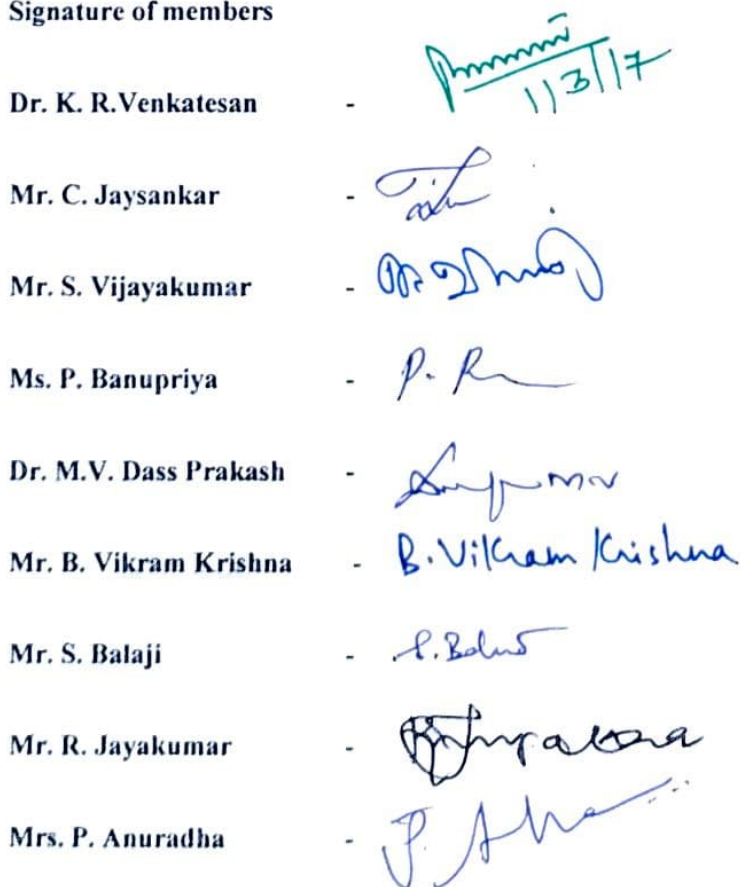 Signature of members
1/3/17
Dr. K. R.Venkatesan -
Mr. C. Jaysankar -
Mr. S. Vijayakumar -
Ms. P. Banupriya - P.
Dr. M.V. Dass Prakash -
Mr. B. Vikram Krishna - B. Vikram Krishna
Mr. S. Balaji - S. Balaji
Mr. R. Jayakumar -
Mrs. P. Anuradha - P.